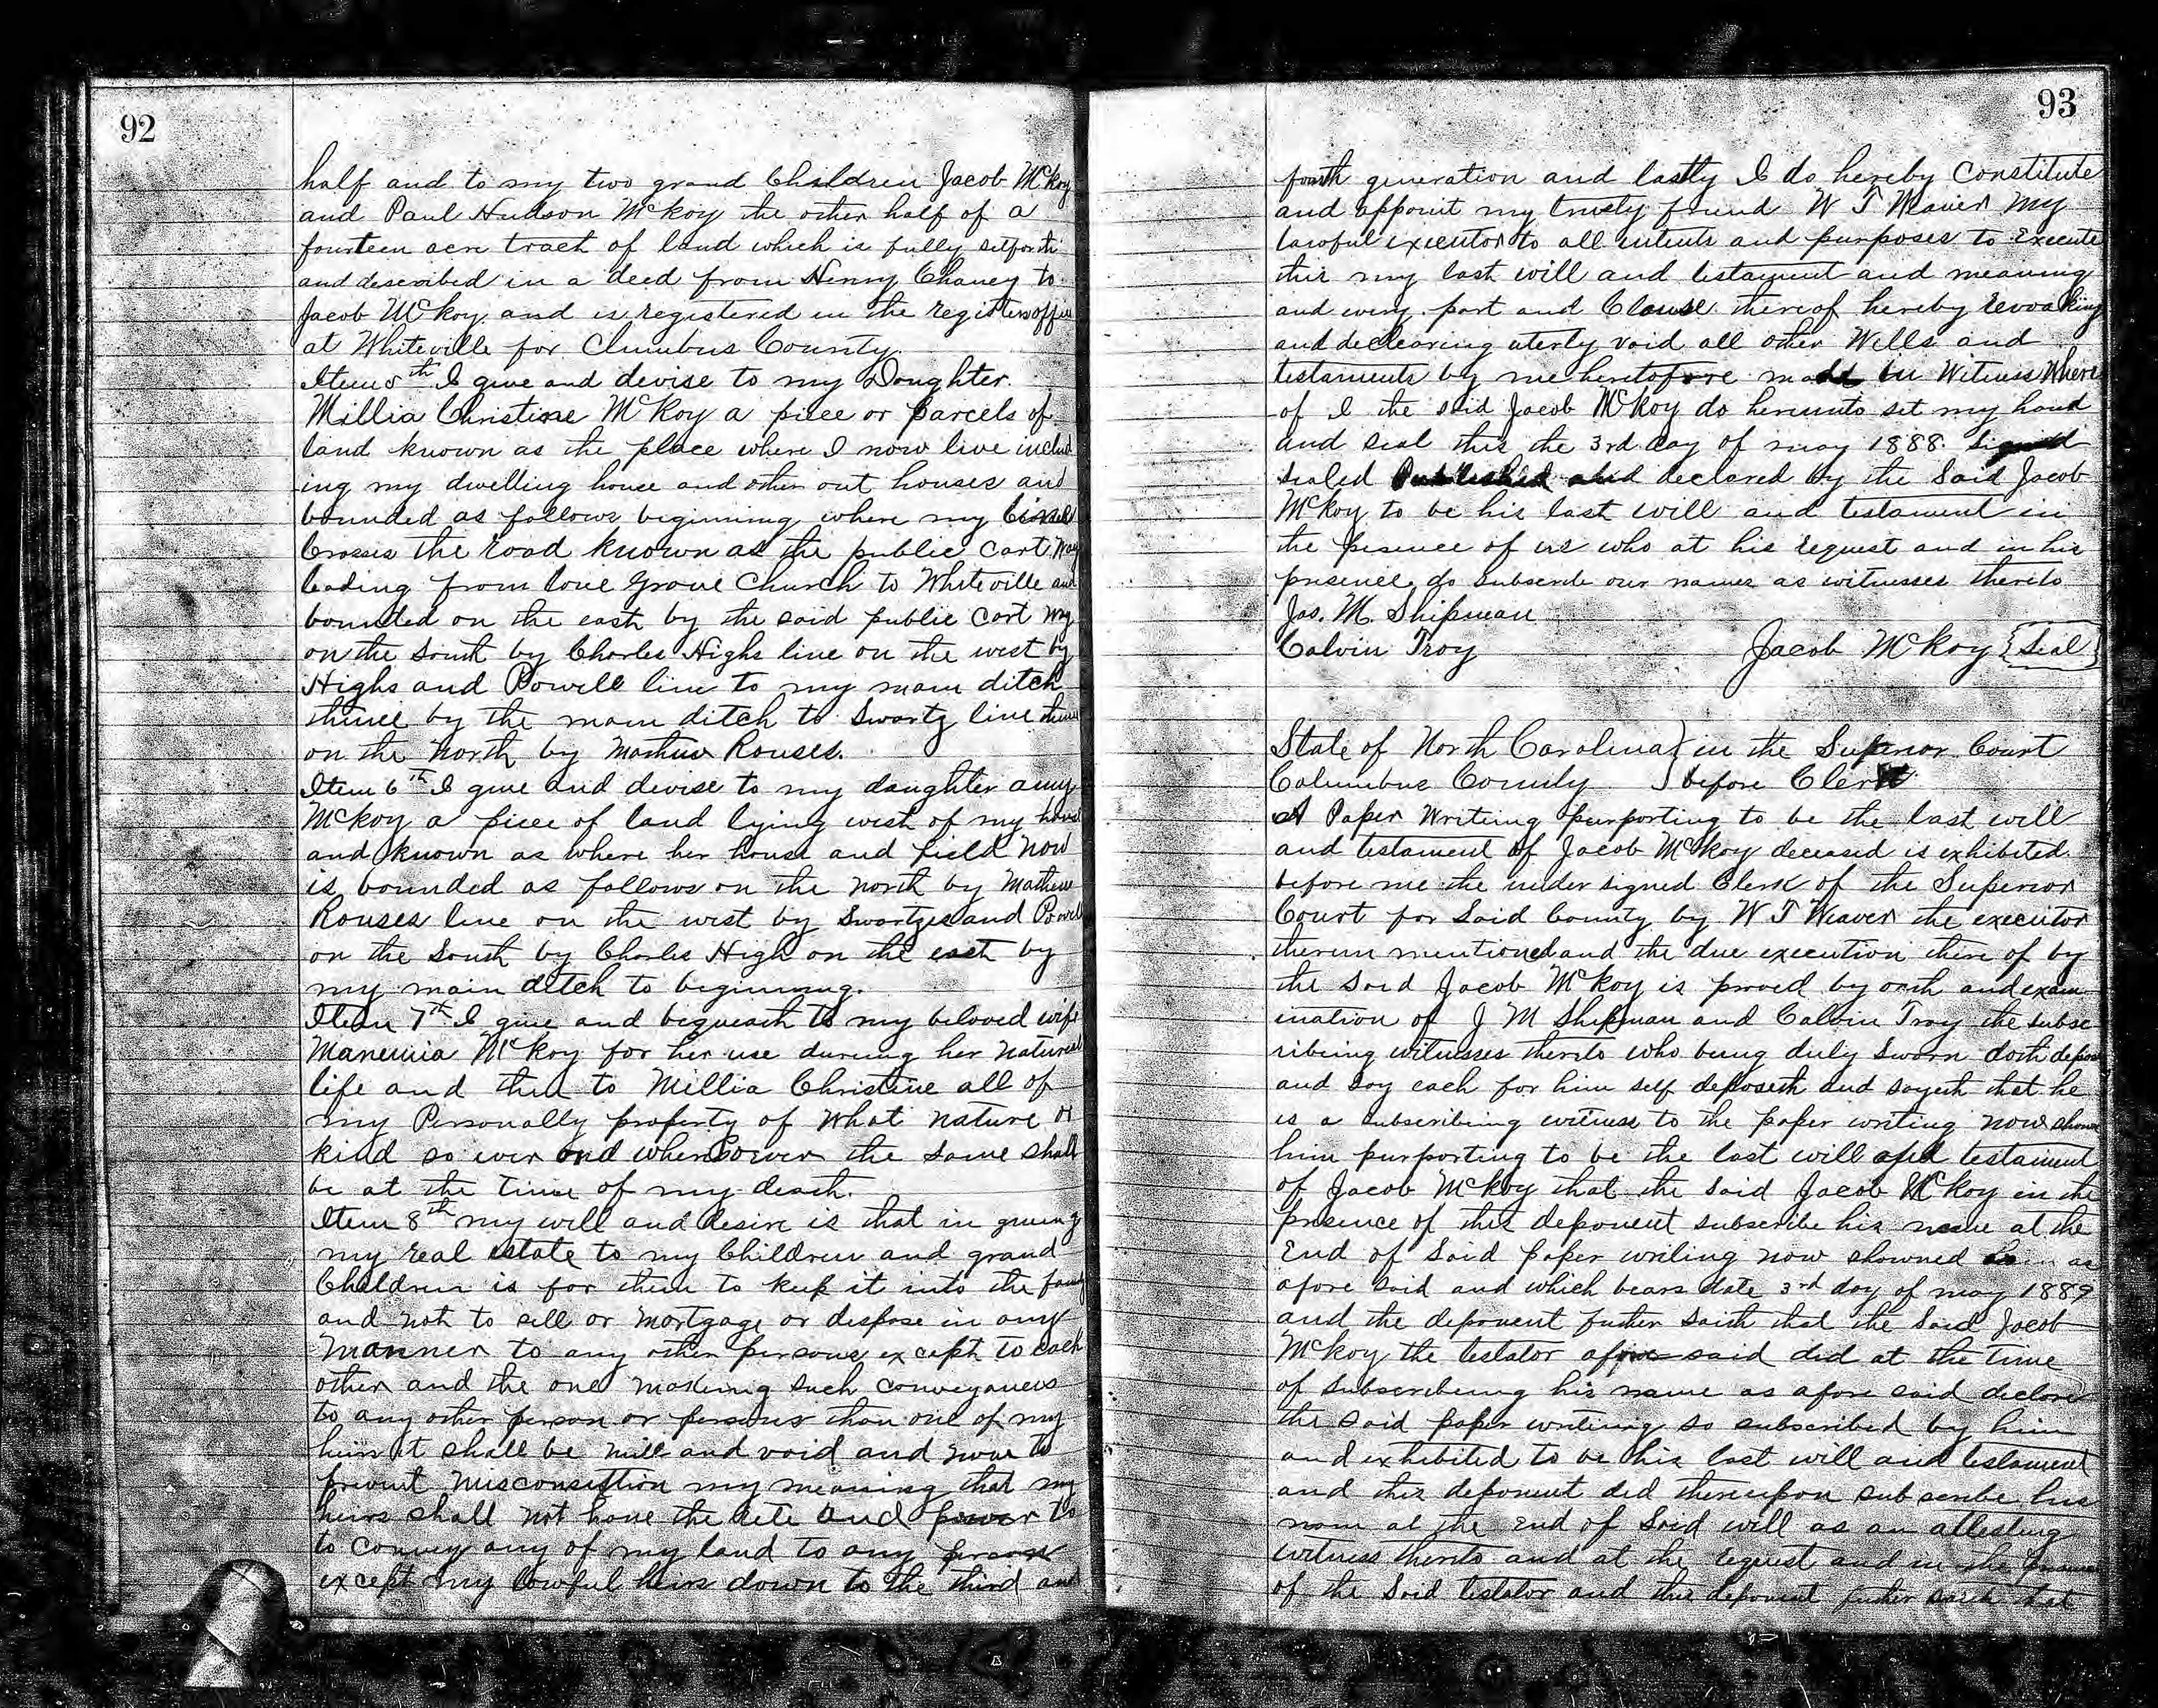 92
half and to my two grand Children Jacob McKoy
and Paul Hudson McKoy the other half of a
fourteen acre tract of land which is fully setforth
and described in a deed from Henry Chaney to
Jacob McKoy and is registered in the registers office
at Whiteville for Clumbus County.
Item 5th I give and devise to my Doughter
Millia Christine McKoy a piece or parcels of
land known as the place where I now live includ
ing my dwelling house and other out houses and
bounded as follows beginning where my
Crosses the road known as the public Cart Way
leading from love Grove Church to Whiteville and
bounded on the east by the said public Cart way
on the South by Charles Highs line on the west by
Highs and Powell line to my main ditch
thence by the main ditch to Swartz line thence
on the North by Mathew Rouses.
Item 6th I give and devise to my daughter amy
McKoy a piece of land lying west of my house
and known as where her house and field now
is bounded as follows on the north by Mathew
Rouses line on the west by Swartzes and Powell
on the South by Charles High on the east by
my main ditch to beginning.
Item 7th I give and bequeath to my beloved wife
McKoy for her use during her natureal
life and then to Millia Christine all of
my Personally property of What nature or
kind so ever and whensoever the same shall
be at the time of my death.
Item 8th my will and desire is that in giveing
my real estate to my Children and grand
Children is for them to keep it into the family
and not to sell or mortgage or dispose in any
manner to any other persons except to each
other and the one making such conveyances
to any other person or persons than one of my
heirs it shall be null and void and now to
prevent my meaning that my
heirs shall not have the and power to
to convey any of my land to any person
except my lawful heirs down to the third and
93
fourth generation and lastly I do hereby Constitute
and appoint my trusty friend W T Weaver my
lawful executor to all intents and purposes to Execute
this my last will and testament and meaning
and every part and Clause thereof hereby revoaking
and declearing uterly void all other Wills and
testaments by me heretofore made in Witness Where
of I the said Jacob McKoy do hereunto set my hand
and seal this the 3rd day of may 1888. Signed
sealed Published and declared by the Said Jacob
McKoy to be his last will and testament in
the presence of us who at his request and in his
presence do subscribe our names as witnesses thereto
Jas. M. Shipman
Calvin Troy Jacob McKoy {Seal}
State of North Carolina } in the Superior Court
Columbus County } before Clerk
A Paper Writing purporting to be the last will
and testament of Jacob McKoy deceased is exhibited
before me the under signed Clerk of the Superior
Court for Said County by W T Weaver the executor
therein mentioned and the due execution there of by
the Said Jacob McKoy is proved by oath and exam
ination of J M Shipman and Calvin Troy the subsc
ribeing witnesses thereto who being duly sworn doth depose
and say each for him self deposeth and sayeth that he
is a subscribing witness to the paper writing now shown
him purporting to be the last will and testament
of Jacob McKoy that the said Jacob McKoy in the
presence of this deponent subscribe his name at the
End of Said paper writing now showned him as
afore said and which bears date 3rd day of may 1889
and the deponent futher saith that the Said Jacob
McKoy the testator afore said did at the time
of subscribeing his name as afore said declare
the said paper writeing so subscribed by him
and exhibited to be his last will and testament
and this deponent did thereupon subscribe his
name at the End of Said will as an attesting
witness thereto and at the request and in the presence
of the Said testator and this deponent futher saith that